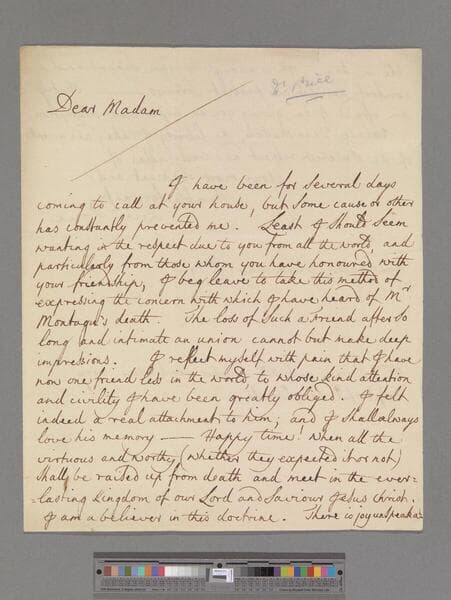 Dr Price
Dear Madam
I have been for several days
coming to call at your house, but some cause or other
has constantly prevented me. Least I should seem
wanting in the respect due to you from all the world, and
particularly from those whom you have honoured with
your friendship, I beg leave to take this method of
expressing the concern with which I have heard of Mr
Montagu's death. The loss of such a friend after so
long and intimate an union cannot but make deep
impressions. I reflect myself with pain that I have
now one friend less in the world, to whose kind attention
and civility I have been greatly obliged. I felt
indeed a real attachment to him; and I shall always
love his memory — Happy time! when all the
virtuous and worthy (whether they expected it or not)
shall be raised up from death and meet in the ever=
-lasting kingdom of our Lord and Saviour Jesus Christ.
I am a believer in this doctrine. There is joy unspeaka=